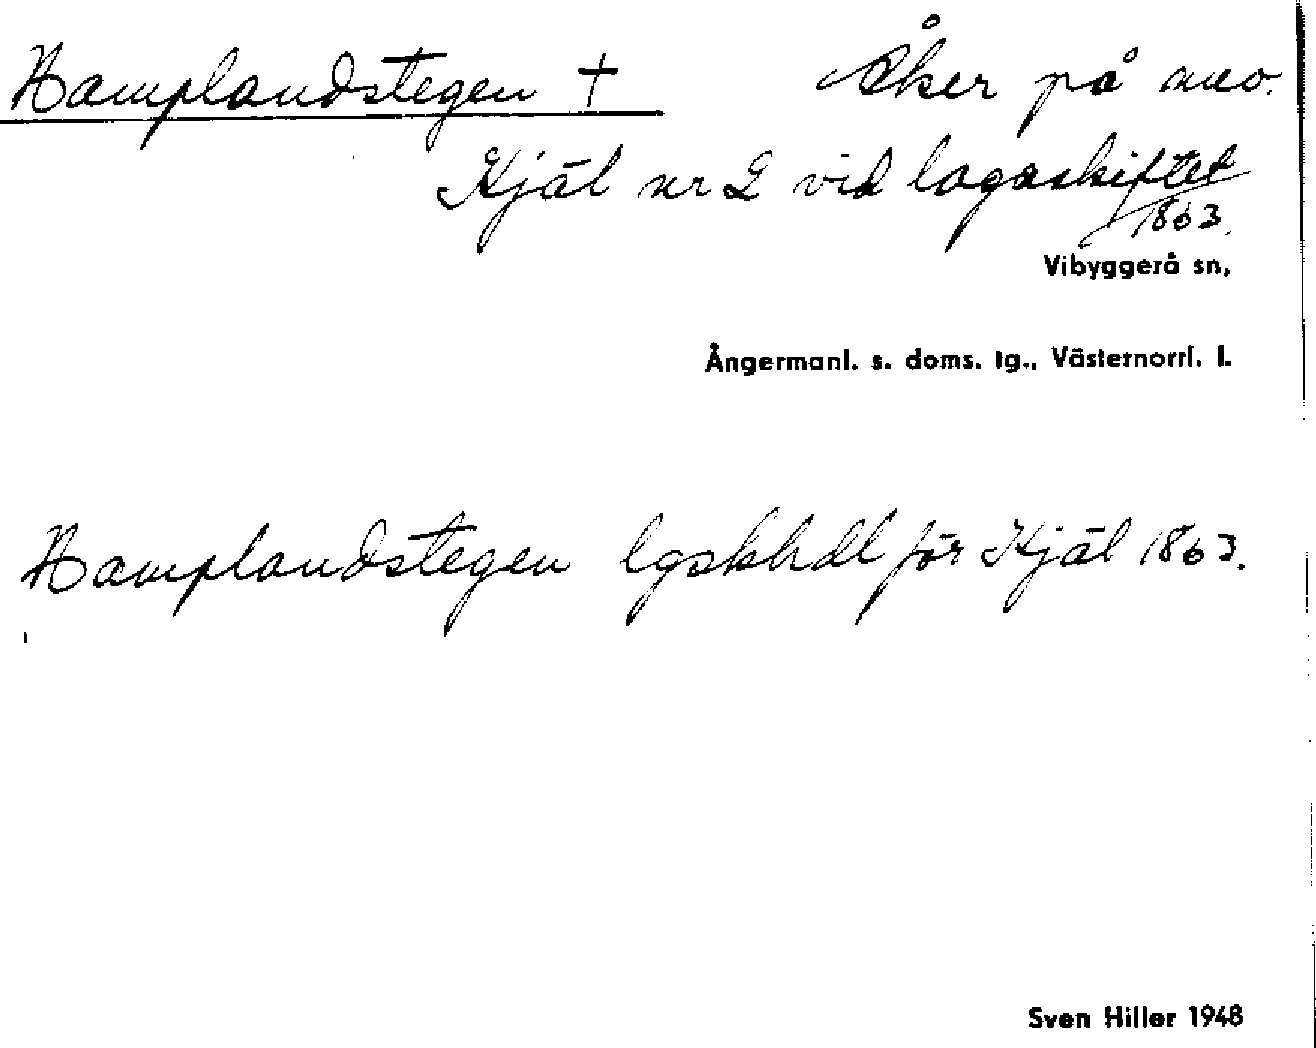 Hamplandstegen †
Åker på
Kjäl nr 2 vid lagaskiftet
1863.
Vibyggerå sn,
Ångermanl. s. doms. tg., Västernorrl. l.
Hamplandstegen lgskhdl för Kjäl 1863.
Sven Hiller 1948